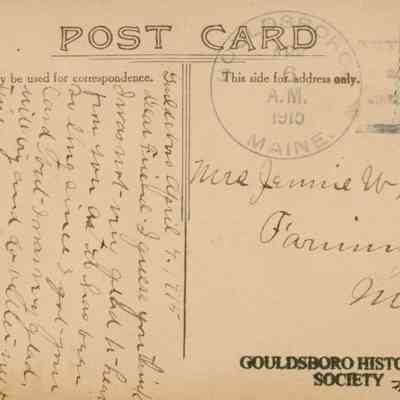 POST CARD
y be used for correspondence.
This side for address only.
GOULDSBORO
6
A.M.
1915
MAINE.
Gouldsboro April 4, 1915
Dear Friend- I guess you think
I was not very glad to hear
from you as it has been
so long since I got your
Card but I was very glad,
Mrs Jennie W
Farmin
M
GOULDSBORO HISTO
SOCIETY